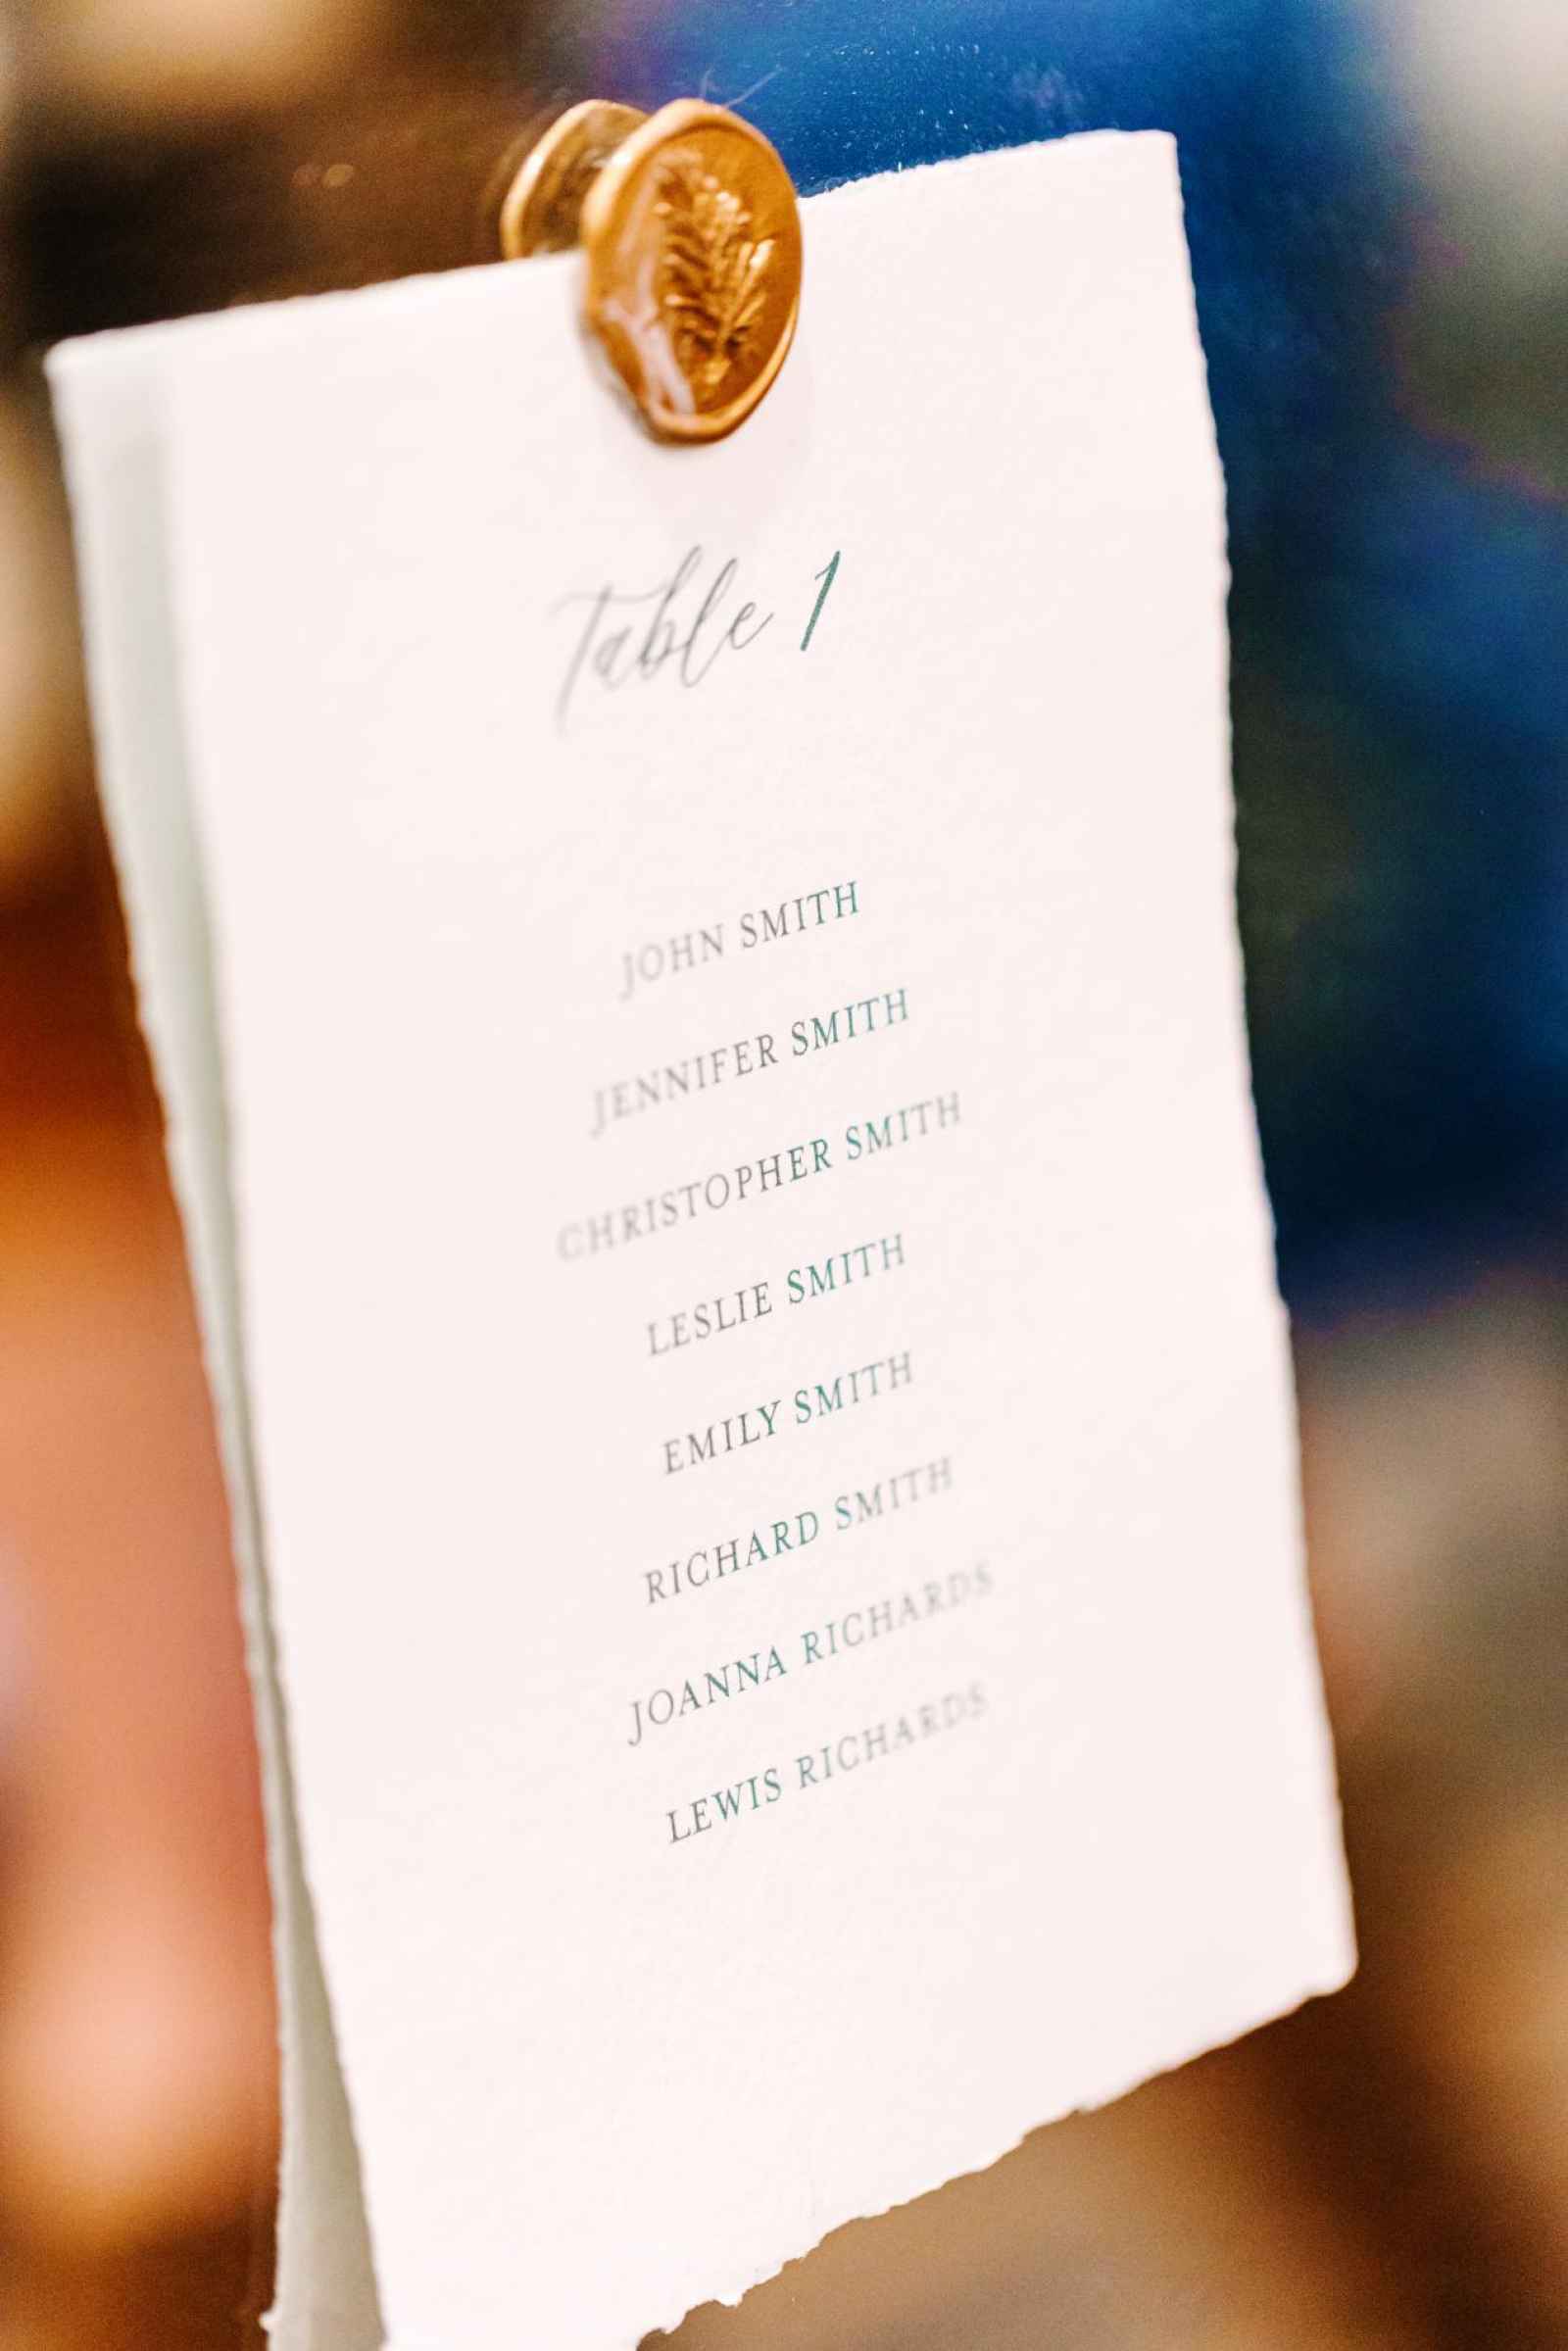 Table 1
JOHN SMITH
JENNIFER SMITH
CHRISTOPHER SMITH
LESLIE SMITH
EMILY SMITH
RICHARD SMITH
JOANNA RICHARDS
LEWIS RICHARDS